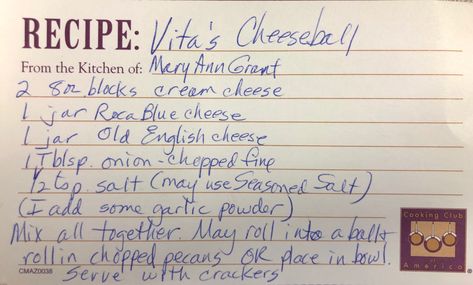 RECIPE: Vita's Cheeseball
From the Kitchen of: Mary Ann Grant
2 8oz blocks cream cheese
1 jar Roca Blue cheese
1 jar Old English cheese
1 Tblsp. onion-chopped fine
1/2 tsp. salt (may use Seasoned Salt)
(I add some garlic powder)
Mix all together. May roll into a ball &
roll in chopped pecans OR place in bowl.
Serve with crackers
Cooking Club
of
America
CMAZ0038